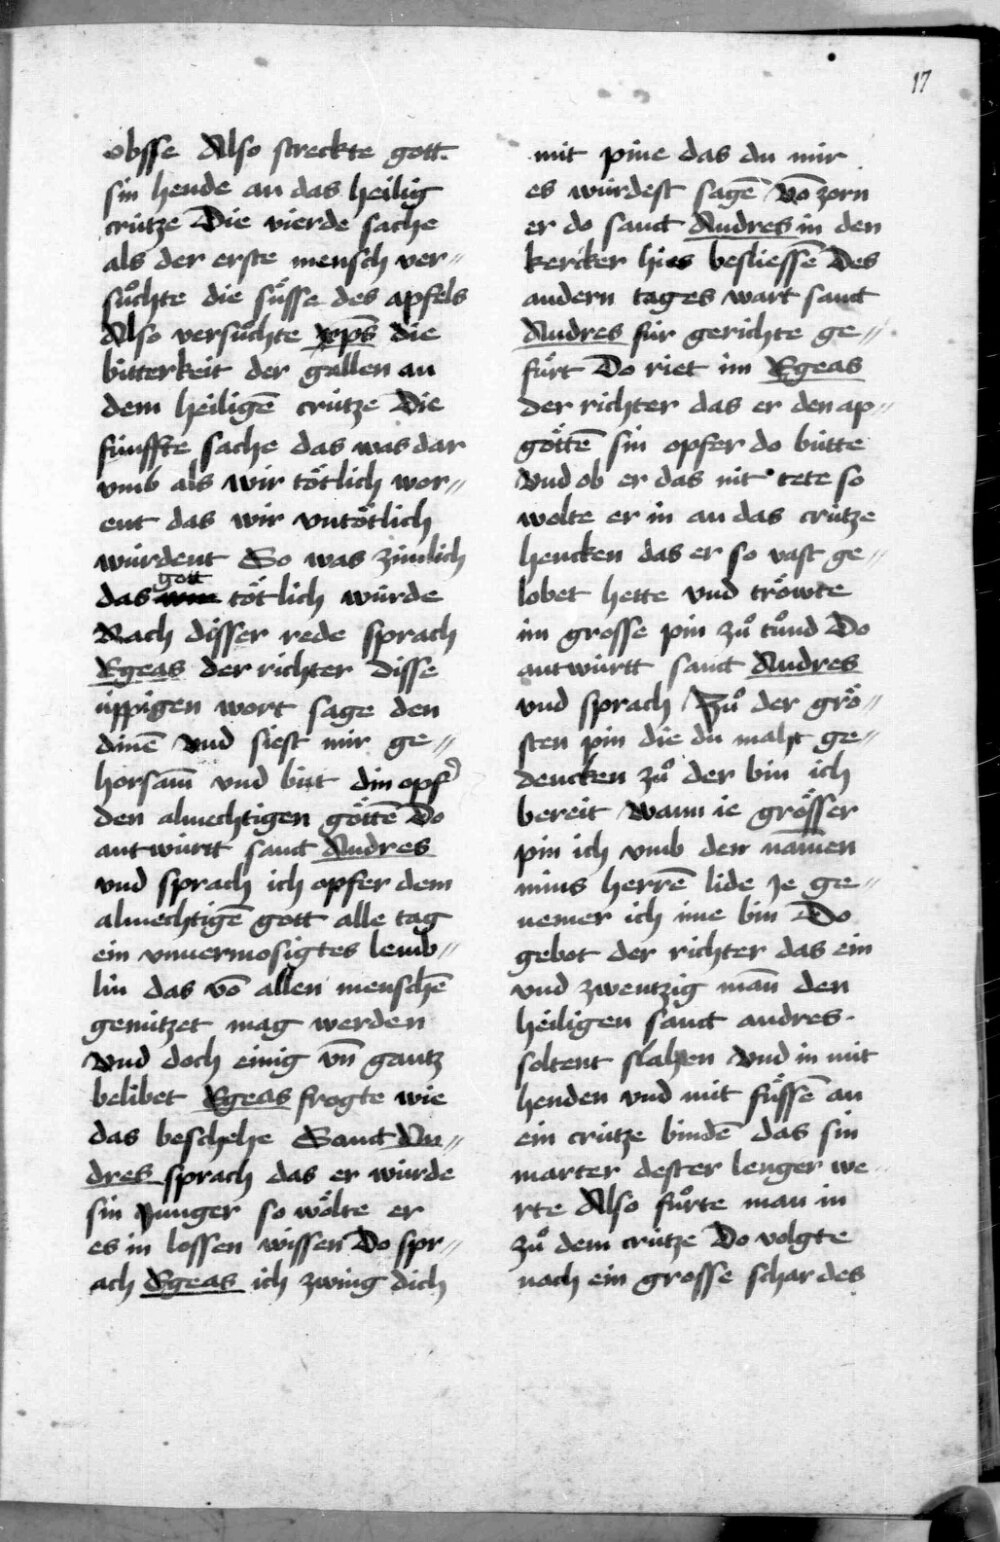 17
obsse Also streckte gott
sin hende an das heilig
crütze Die vierde sache
als der erste mensch ver⸗
sůchte die sůsse des apfels
Also versůchte xp̄s die
bitterkeit der gallen an
dem heiligē crütze Die
fünffte sache das was dar
vmb als wir tötlich wor⸗
ent das wir vntötlich
würdent So was zimlich
das gott tötlich würde
Nach disser rede sprach
Egeas der richter Disse
üppigen wort sage den
dinē vnd siest mir ge⸗
horsam̄ vnd büt din opfˀ
den almechtigen göttē Do
antwürtt sanct Andres
vnd sprach ich opfer dem
almechtigē gott alle tag
ein vnuermosigtes lemb⸗
lin das vō allen menschē
genützet mag werden
Vnd doch einig vn̄ gantz
belibet Egeas frogte wie
das beschehe Sanct An⸗
dres sprach das er würde
sin junger so wölte er
es in lossen wissen Do spr⸗
ach Egeas ich zwing dich
mit pine das du mir
es würdest sagē Vō zorn
er do sanct Andres in den
kercker hies besliessē Des
andern tages wart sanct
Andres für gerichte ge⸗
fürt Do riet im Egeas
der richter das er den ap⸗
göttē sin opfer do bütte
Vnd ob er das nit tete so
wolte er in an das crütze
hencken das er so vast ge⸗
lobet hette vnd tröwte
im grosse pin zů tůnd Do
antwürtt sanct Andres
vnd sprach Zů der grö⸗
sten pin die du maht ge⸗
dencken zů der bin ich
bereit Wann ie grösser
pin ich vmb den nam̄en
mins herrē lide Je ge⸗
nemer ich ime bin Do
gebot der richter das ein
vnd zwentzig man̄ den
heiligen sanct andres
soltent slahen Vnd in mit
henden vnd mit füssē an
ein crütze bindē das sin
marter dester lenger we
rte Also fůrte man in
zů dem crütze Do volgte
noch ein grosse schar des